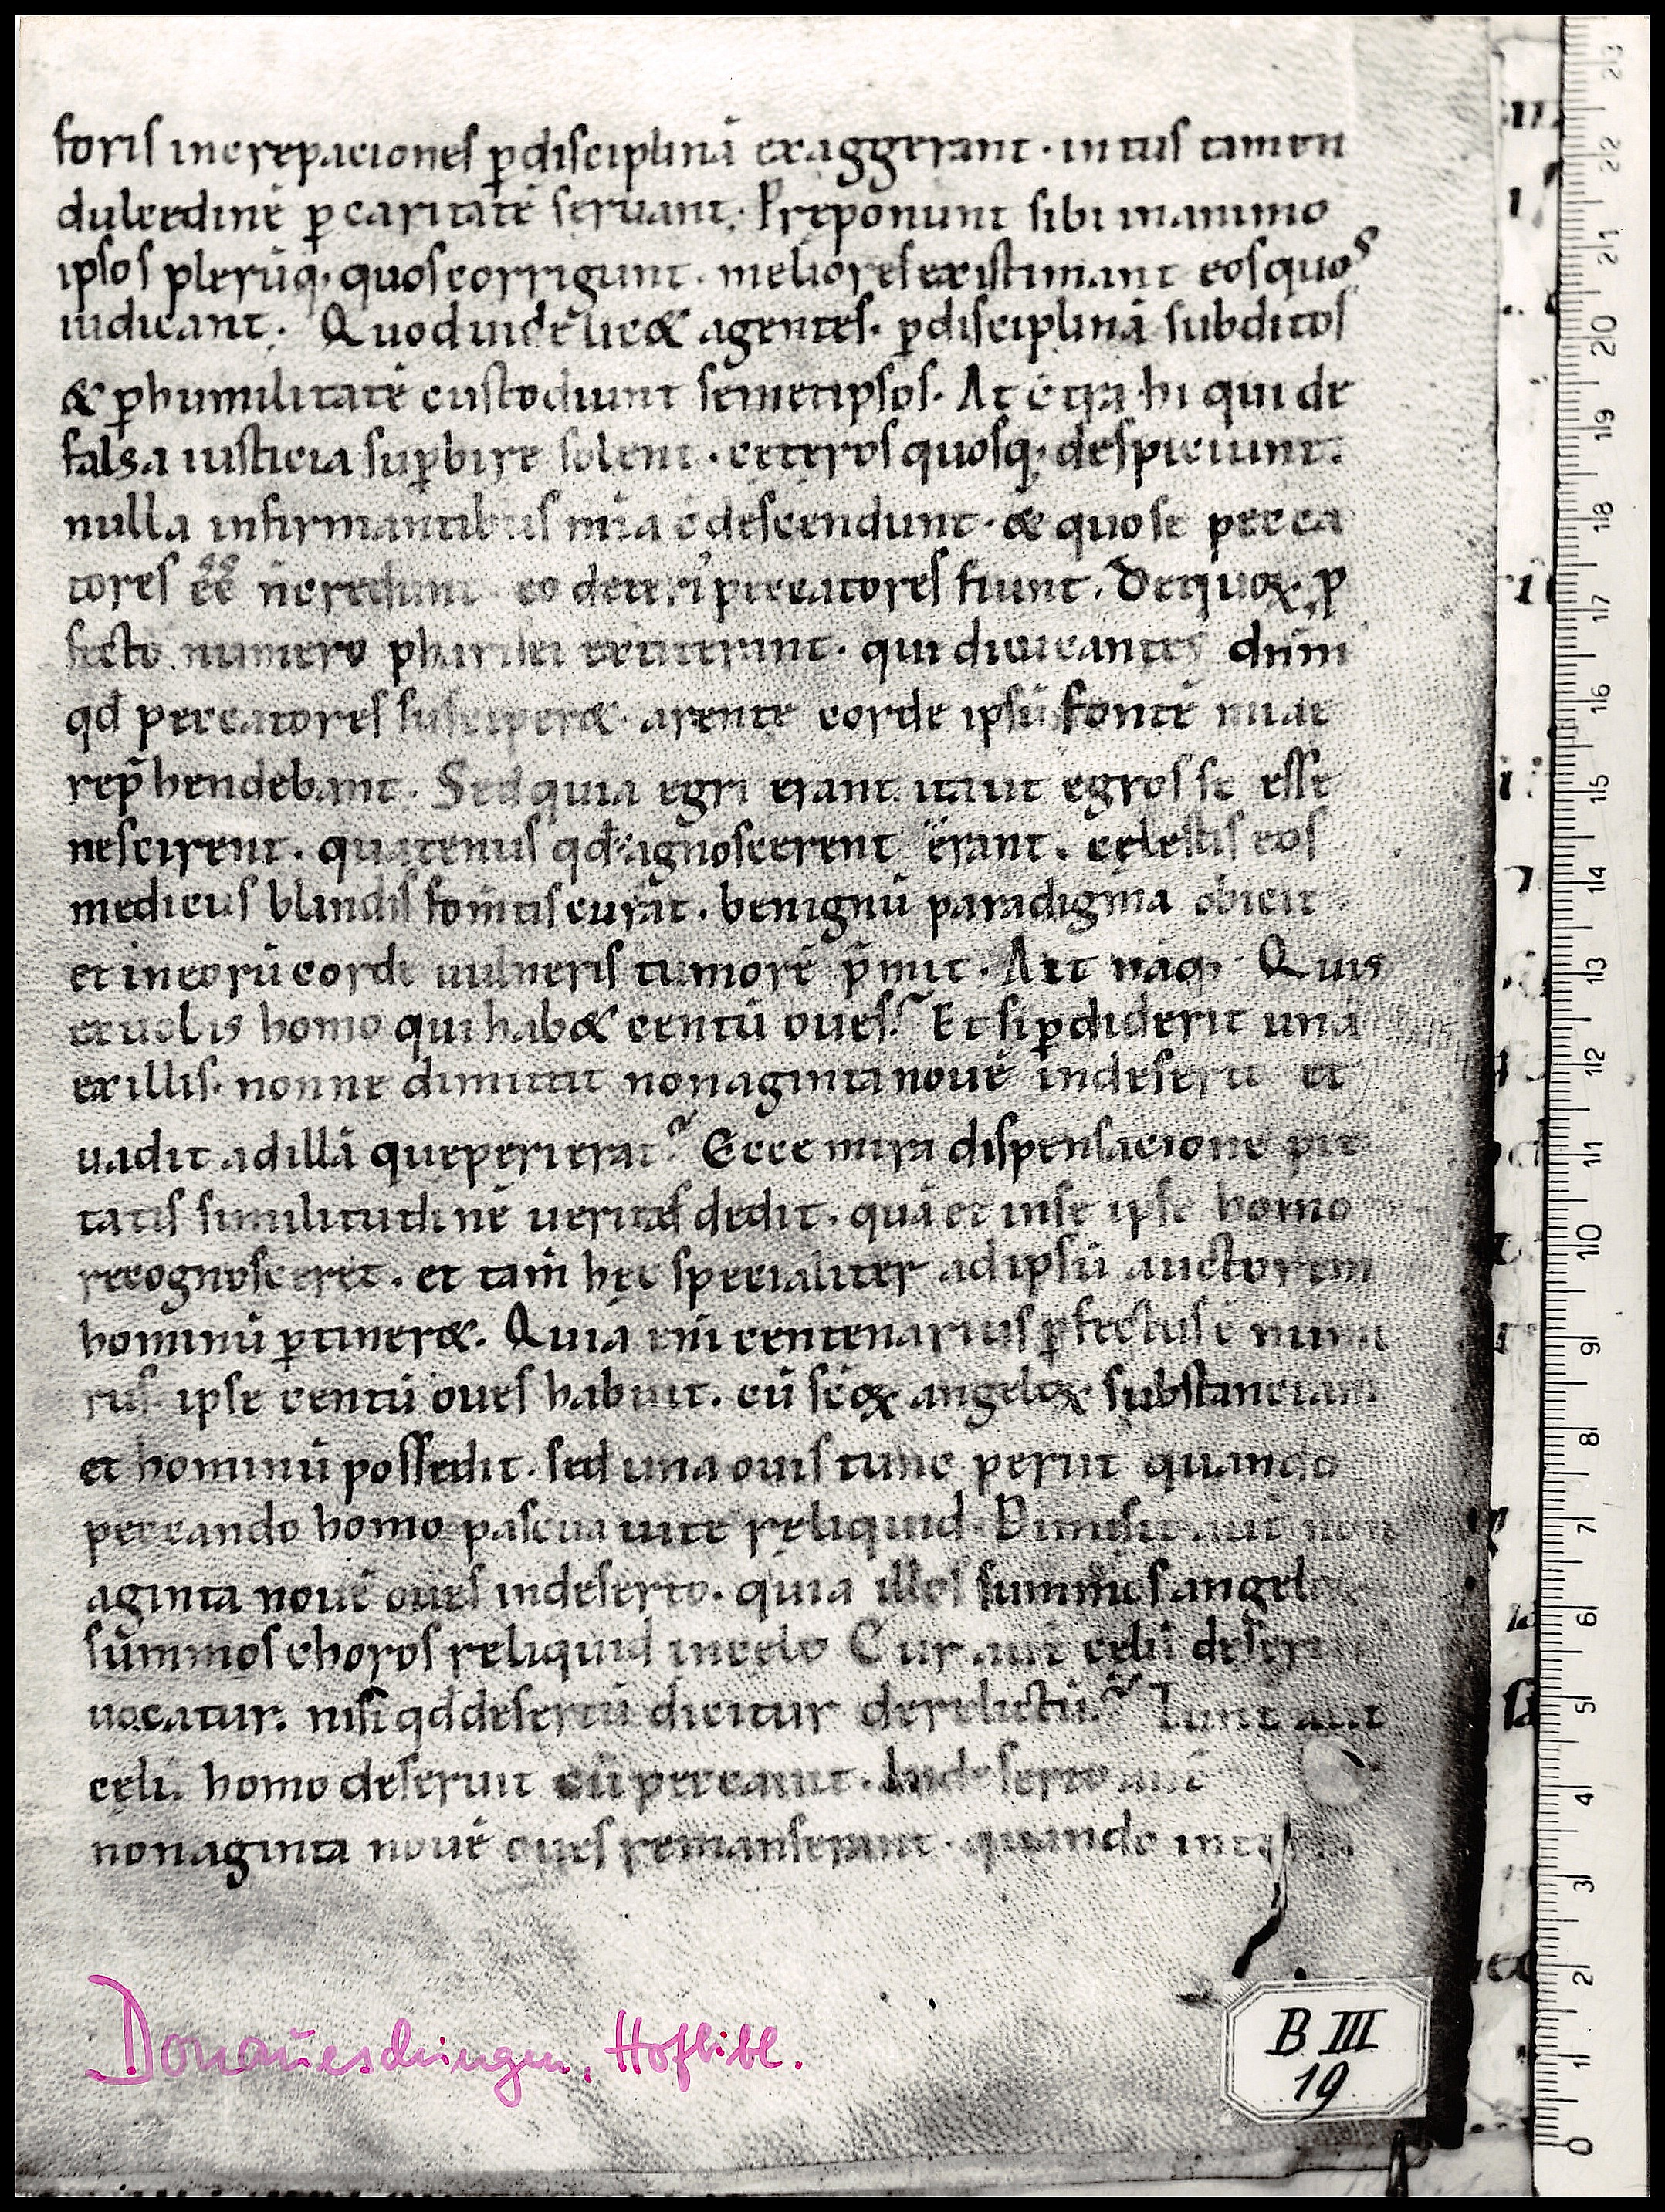 foris increpaciones ꝑ disciplinā exaggerant · intus tamen
dulcedinē ꝑ caritatē seruant · Preponunt sibi in animo
ipsos plerūq; quos corrigunt · meliores existimant eos quos
iudicant · Quod uidelic& agentes · ꝑ disciplinā subditos
& ꝑ humilitatē custodiunt semetipsos · At c̄tra · hi qui de
falsa iusticia suꝑbire solent · ceteros quosq; despiciunt ·
nulla infirmantibus mīa c̄descendunt · & quo se pecca
tores eē n̄ credunt eo deteri᷒ peccatores fiunt · De quoꝝ ꝓ
fecto numero pharisei extiterant · qui diiudicantes dnm̄
qđ peccatores susciper& · arente corde ipsū fontē mīae
rep̄hendebant · Sed quia egri erant ita ut egros se esse
nescirent · quatenus qđ agnoscerent erant · celestis eos
medicus blandis fom̄tis curat · benignū paradigma obicit
et in eorū corde uulneris tumorē p̄mit · Ait nāq; Quis
ex uobis homo qui hab& centū oues? Et si ꝑdiderit unā
ex illis · nonne dimittit nonaginta nouē in deserto et
uadit ad illā que perierat? Ecce mira dispensacione pie
tatis similitudinē ueritas dedit · quā et in se ipse homo
recognosceret · et tam̄ hec specialiter ad ipsū auctorem
hominū ꝑtiner& · Quia eni centenarius ꝑfectus ē nume
rus · ipse centū oues habuit · cū sc̄oꝝ angeloꝝ substanciam
et hominū possedit · sed una ouis tunc periit quando
peccando homo pascua uite reliquid · Dimisit aut̄ non
aginta nouē oues in deserto · quia illos summos angelo
summos choros reliquid in celo Cur aut̄ celū deser
uocatur · nisi qđ desertū dicitur derelictū? Tunc aut
celū homo deseruit cū peccauit · In deserto aut̄
nonaginta nouē oues remanserant · quando in
Donaueschingen, Hofbibl.
B III
19
0 1 2 3 4 5 6 7 8 9 10 11 12 13 14 15 16 17 18 19 20 21 22 23